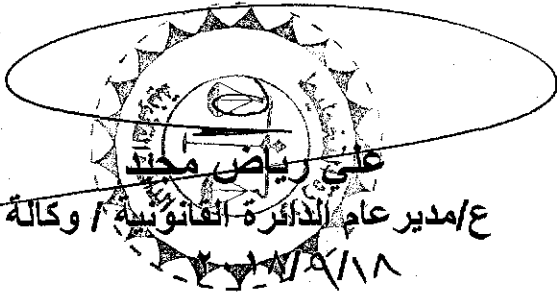 علي رياض مجيد
ع/مدير عام الدائرة القانونية / وكالة
٢٠١٨/٩/١٨